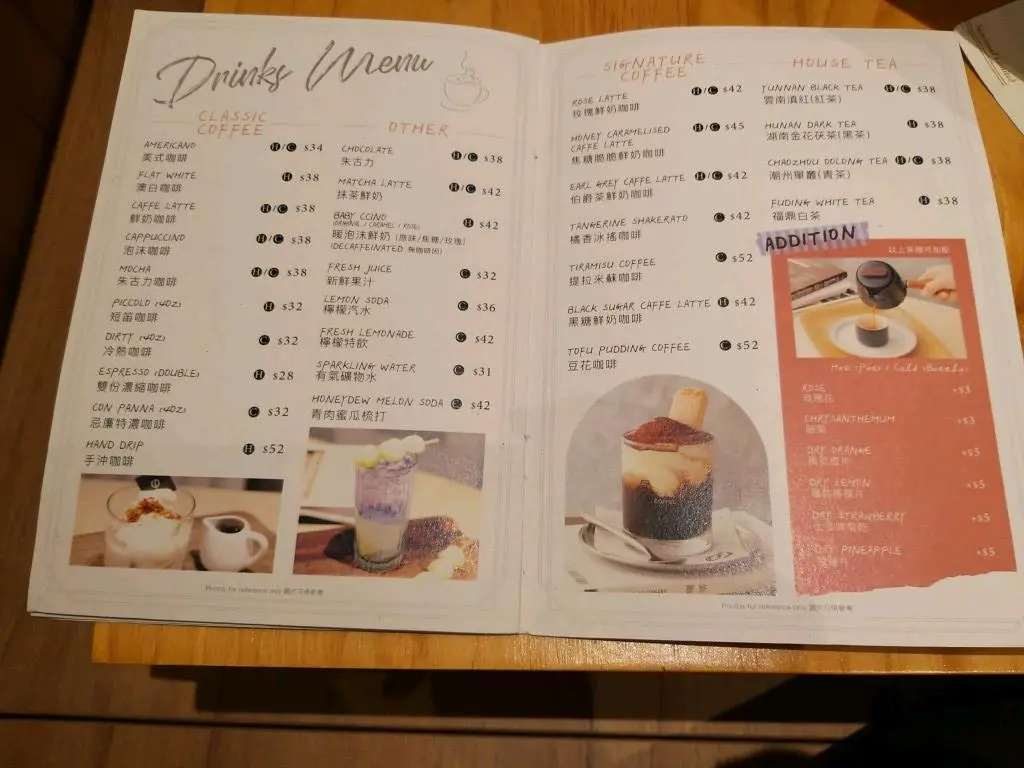 Drinks Menu
CLASSIC
COFFEE
AMERICANO H/C $34
美式咖啡
FLAT WHITE H $38
澳白咖啡
CAFFE LATTE H/C $38
鮮奶咖啡
CAPPUCCINO H/C $38
泡沫咖啡
MOCHA H/C $38
朱古力咖啡
PICCOLO (4OZ) H $32
短笛咖啡
DIRTY (4OZ) C $32
冷熱咖啡
ESPRESSO (DOUBLE) H $28
雙份濃縮咖啡
CON PANNA (4OZ) C $32
忌廉特濃咖啡
HAND DRIP H $52
手沖咖啡
OTHER
CHOCOLATE H/C $38
朱古力
MATCHA LATTE H/C $42
抹茶鮮奶
BABY CCINO H $42
ORIGINAL / CARAMEL / ROSE)
暖泡沫鮮奶 (原味/焦糖/玫瑰)
(DECAFFEINATED 無咖啡因)
FRESH JUICE C $32
新鮮果汁
LEMON SODA C $36
檸檬汽水
FRESH LEMONADE C $42
檸檬特飲
SPARKLING WATER C $31
有氣礦物水
HONEYDEW MELON SODA C $42
青肉蜜瓜梳打
Photos for reference only 圖片只供參考
SIGNATURE
COFFEE
ROSE LATTE H/C $42
玫瑰鮮奶咖啡
HONEY CARAMELISED
CAFFE LATTE H/C $45
焦糖脆脆鮮奶咖啡
EARL GREY CAFFE LATTE H/C $42
伯爵茶鮮奶咖啡
TANGERINE SHAKERATO C $42
橘香冰搖咖啡
TIRAMISU COFFEE C $52
提拉米蘇咖啡
BLACK SUGAR CAFFE LATTE H $42
黑糖鮮奶咖啡
TOFU PUDDING COFFEE C $52
豆花咖啡
HOUSE TEA
YUNNAN BLACK TEA H/C $38
雲南滇紅(紅茶)
HUNAN DARK TEA H $38
湖南金花茯茶(黑茶)
CHAOZHOU OOLONG TEA H/C $38
潮州單叢(青茶)
FUDING WHITE TEA H $38
福鼎白茶
ADDITION
以上茶類可加配
Hot (Pot) / Cold (Bottle)
ROSE +$3
玫瑰花
CHRYSANTHEMUM +$3
DRY ORANGE +$5
DRY LEMON +$5
DRY STRAWBERRY +$5
DRY PINEAPPLE +$5
Photos for reference only 圖片只供參考